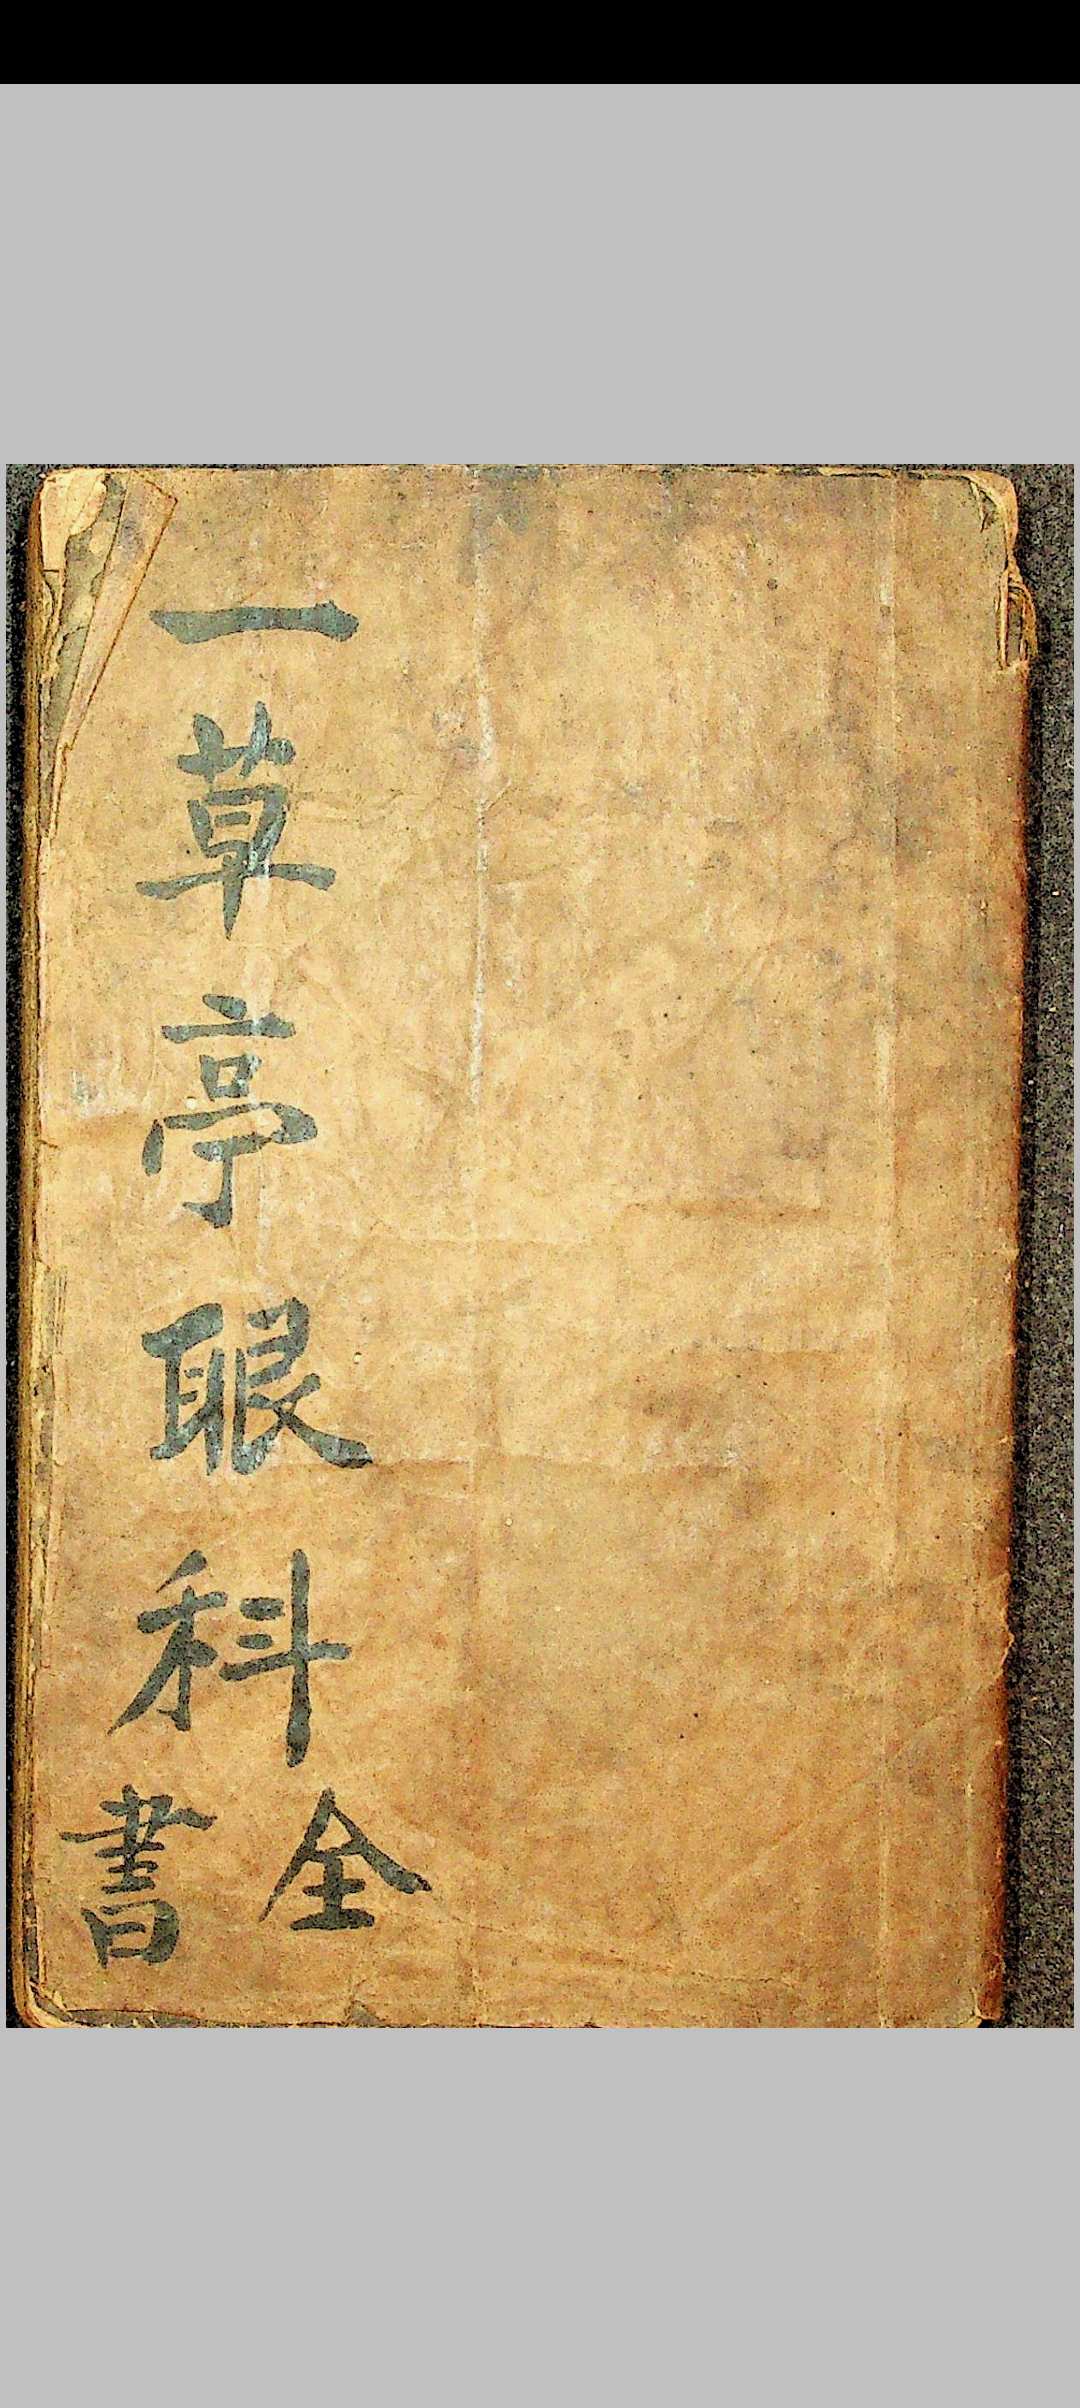 一草亭眼科全書